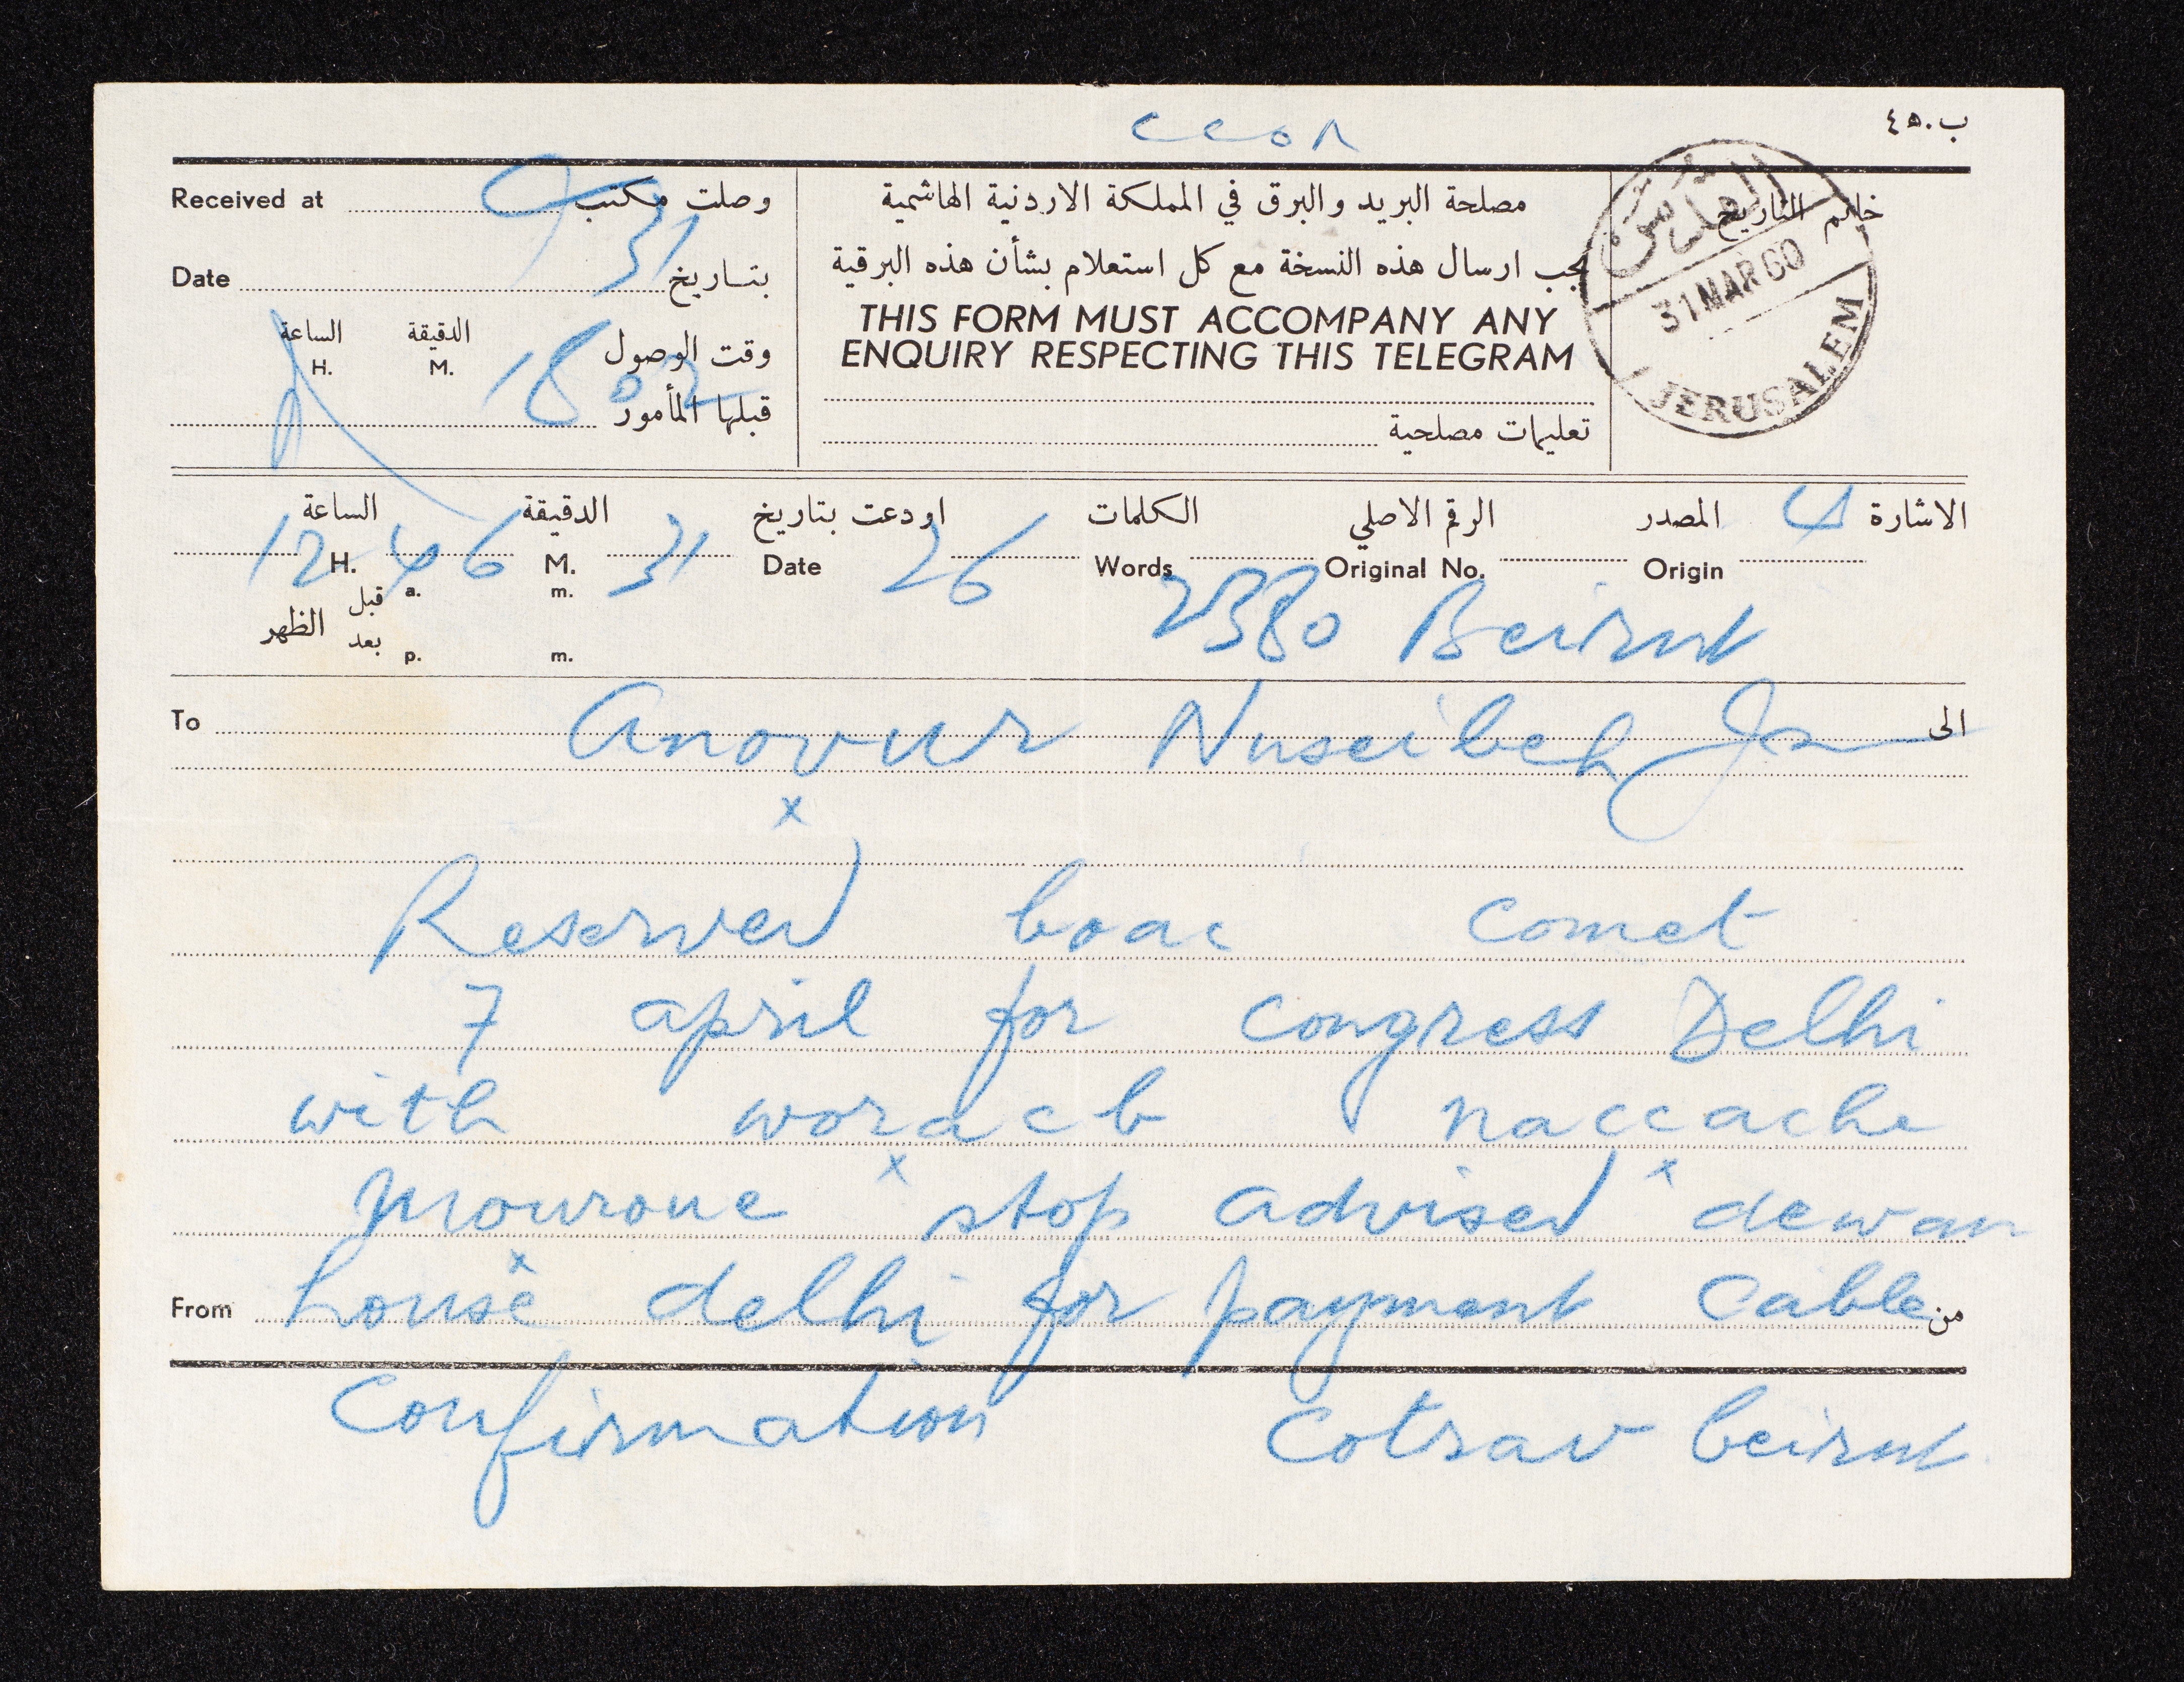 ccon
ب.٤٥
Received at وصلت مكتب
Date 31 بتاريخ
الساعة الدقيقة
H. M. 18 02 وقت الوصول
قبلها المأمور
مصلحة البريد والبرق في المملكة الاردنية الهاشمية
يجب ارسال هذه النسخة مع كل استعلام بشأن هذه البرقية
THIS FORM MUST ACCOMPANY ANY
ENQUIRY RESPECTING THIS TELEGRAM
تعليمات مصلحية
خاتم التاريخ
31 MAR 60
JERUSALEM
الساعة الدقيقة اودعت بتاريخ الكلمات الرقم الاصلي المصدر الاشارة
12 H. 46 M. 31 Date 26 Words Original No. Origin
قبل a. m.
الظهر
بعد p. m.
2380 Beirut
To Anovur Nuseibeh Js الى
x
Reserved boac comet
7 april for congress Delhi
with woracb naccache
mourone x stop advised x dewan
From house x delhi for payment cable من
confirmation cotrav beirut